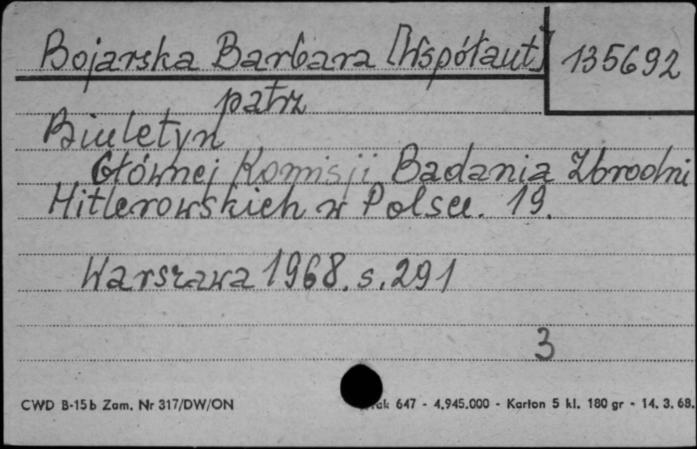 Bojarska Barbara [Współaut] 135692
patrz
Biuletyn
Głównej Komisji Badania Zbrodni
Hitlerowskich w Polsce. 19.
Warszawa 1968. s. 291
3
CWD B-15b Zam. Nr 317/DW/ON 647 - 4.945.000 - Karton 5 kl. 180 gr - 14. 3. 68.